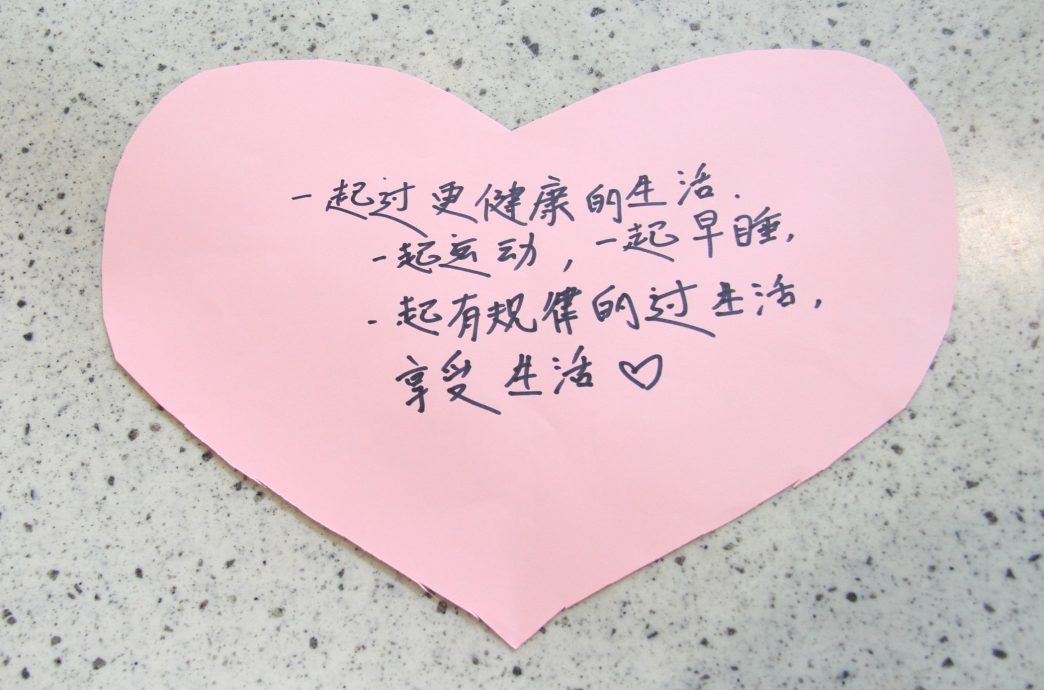 一起过更健康的生活.
一起运动，一起早睡,
一起有规律的过生活,
享受生活♡